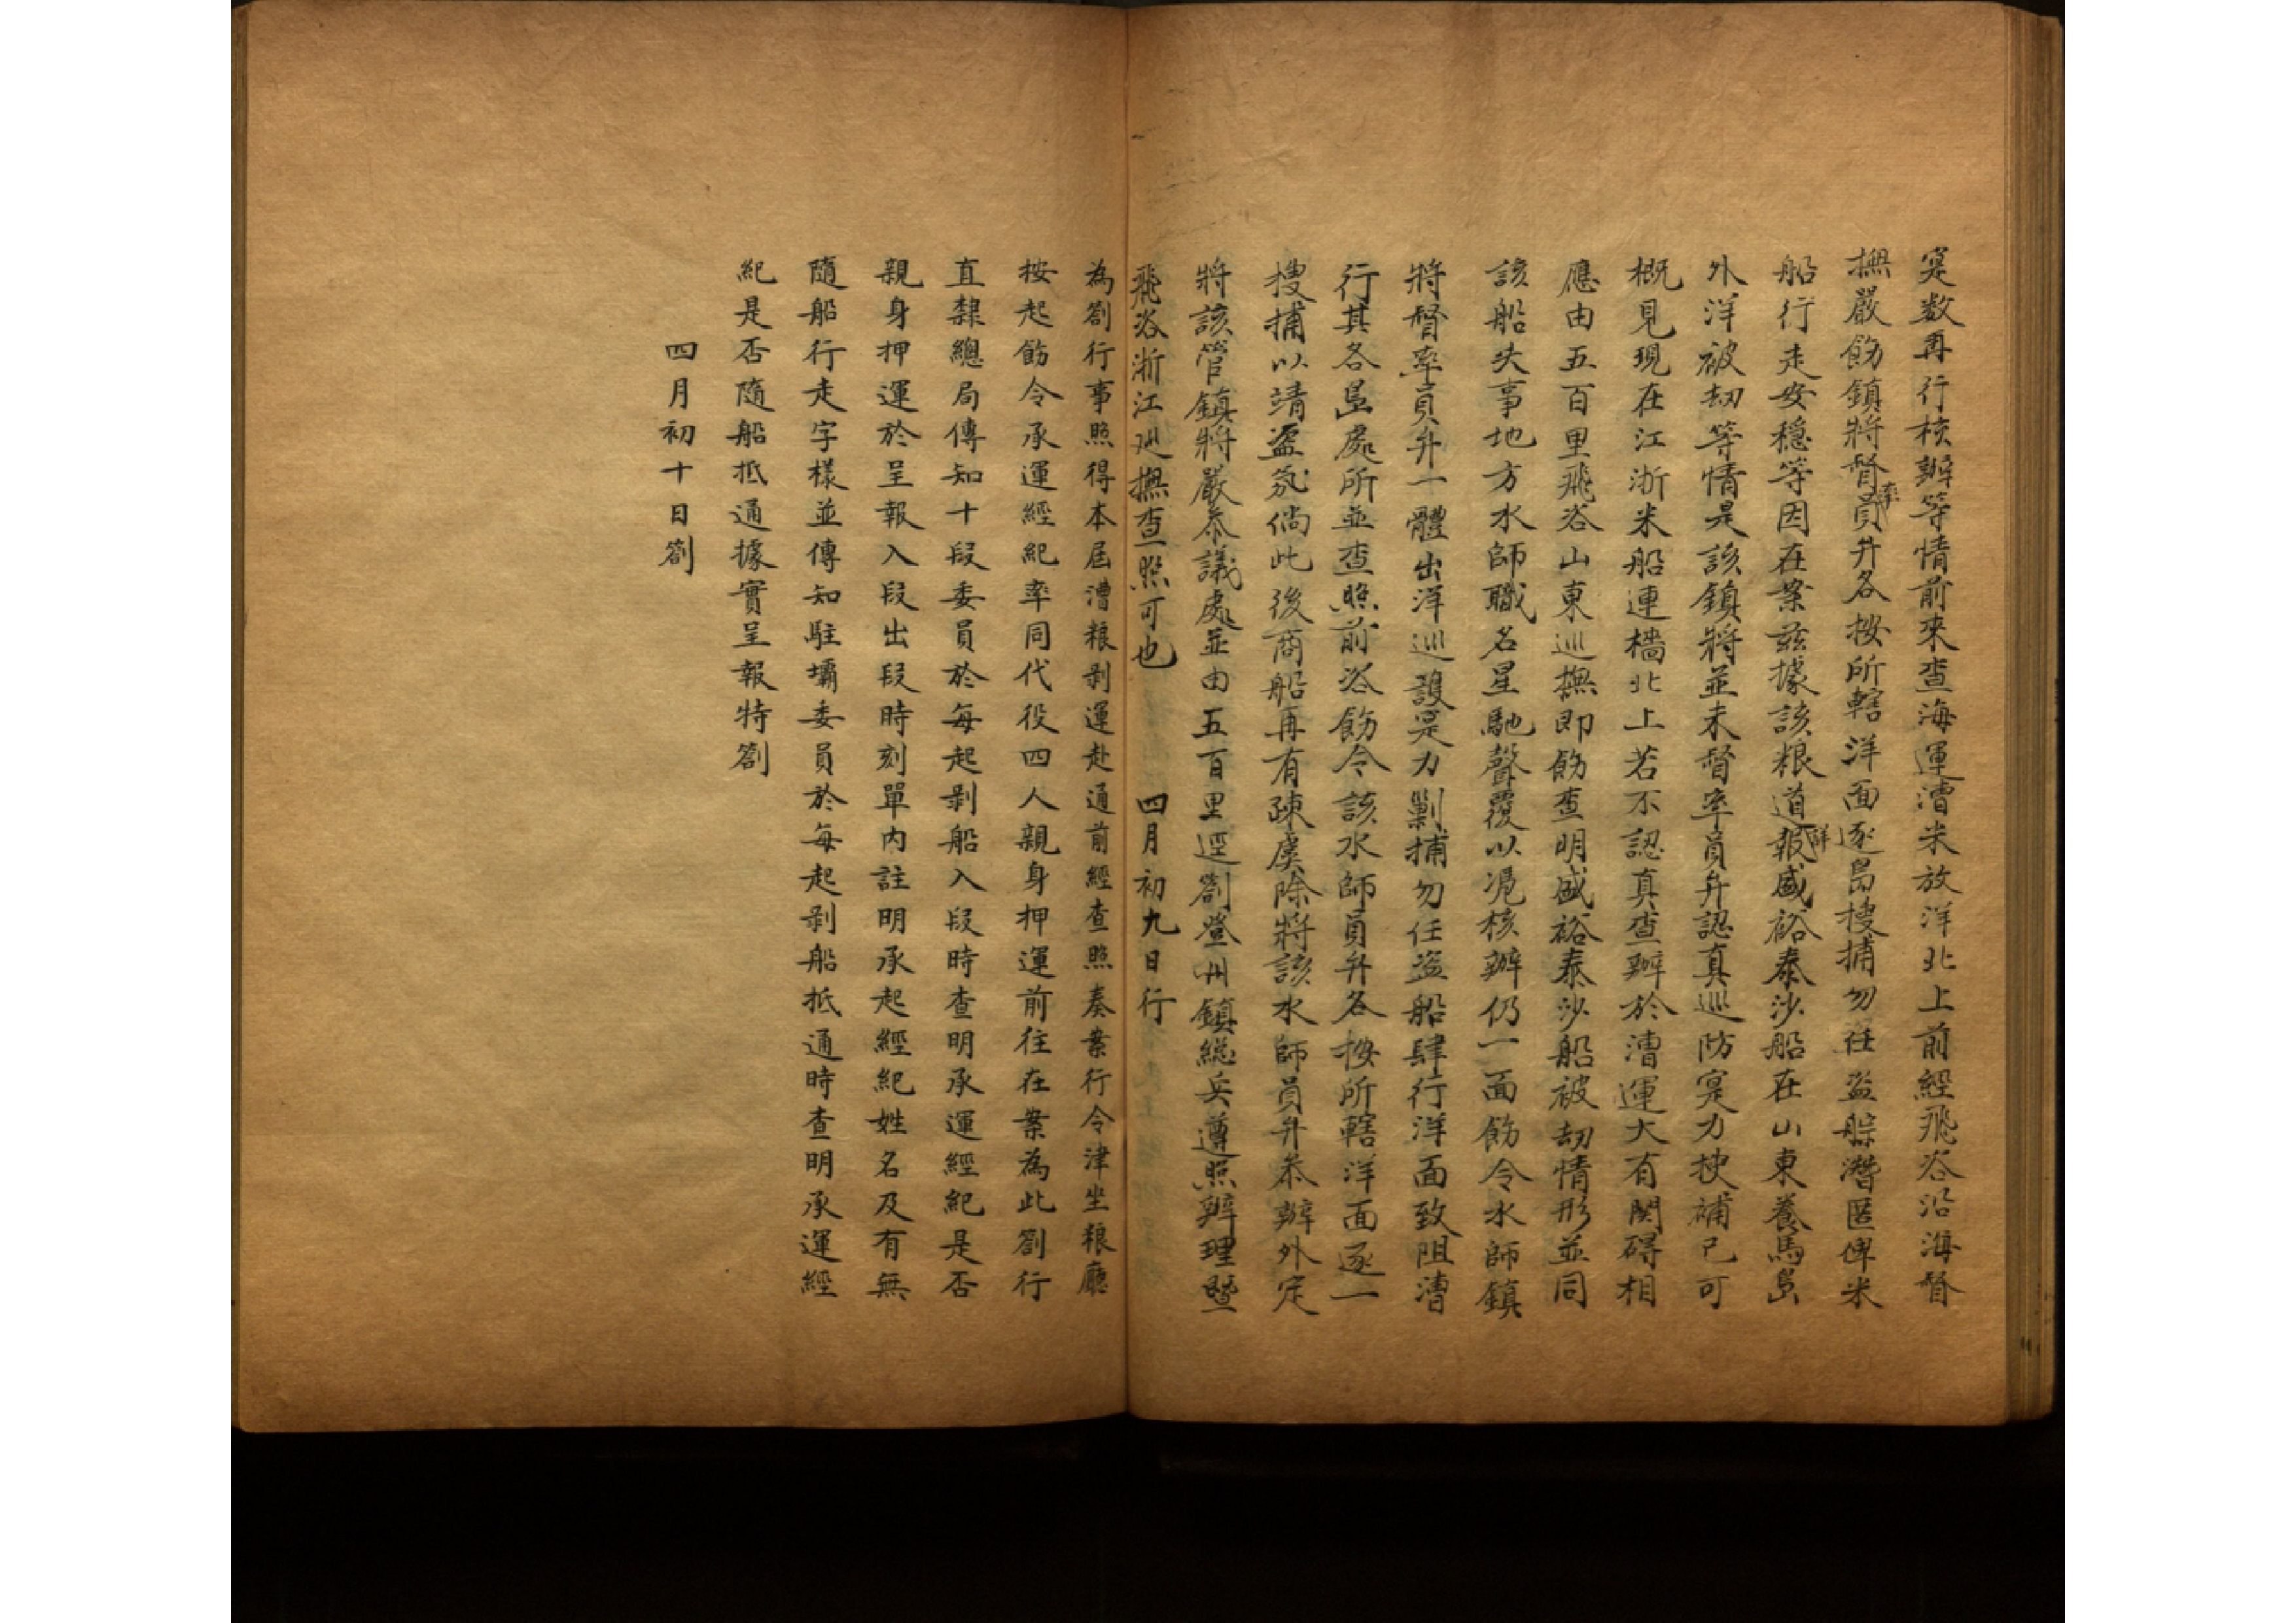 寔数再行核辦等情前來查海運漕米放洋北上前經飛咨沿海督
撫嚴飭鎮將督率員弁各按所轄洋面逐島搜捕勿任盜踪潛匿俾米
船行走安穩等因在案茲據該粮道詳報盛裕泰沙船在山東養馬島
外洋被刼等情是該鎮將並未督率員弁認真巡防寔力抰補已可
概見現在江浙米船連檣北上若不認真查辦於漕運大有関碍相
應由五百里飛咨山東巡撫即飭查明盛裕泰沙船被刼情形並同
該船失事地方水師職名星馳聲覆以凴核辦仍一面飭令水師鎮
將督率員弁一體出洋巡護寔力剿捕勿任盜船肆行洋面致阻漕
行其各島處所並查照前咨飭令該水師員弁各按所轄洋面逐一
搜捕以靖盜氛倘此後商船再有疎虞除將該水師員弁叅辦外定
將該管鎮將嚴叅議處並由五百里逕劄登州鎮総兵遵照辦理暨
飛咨浙江廵撫查照可也 四月初九日行
為劄行事照得本屆漕粮剥運赴通前經查照奏案行令津坐粮廳
按起飭令承運經紀率同代役四人親身押運前往在案為此劄行
直隸總局傳知十段委員於每起剥船入段時查明承運經紀是否
親身押運於呈報入段出段時刻單內註明承起經紀姓名及有無
隨船行走字樣並傳知駐壩委員於每起剥船抵通時查明承運經
紀是否隨船抵通據實呈報特劄
四月初十日劄